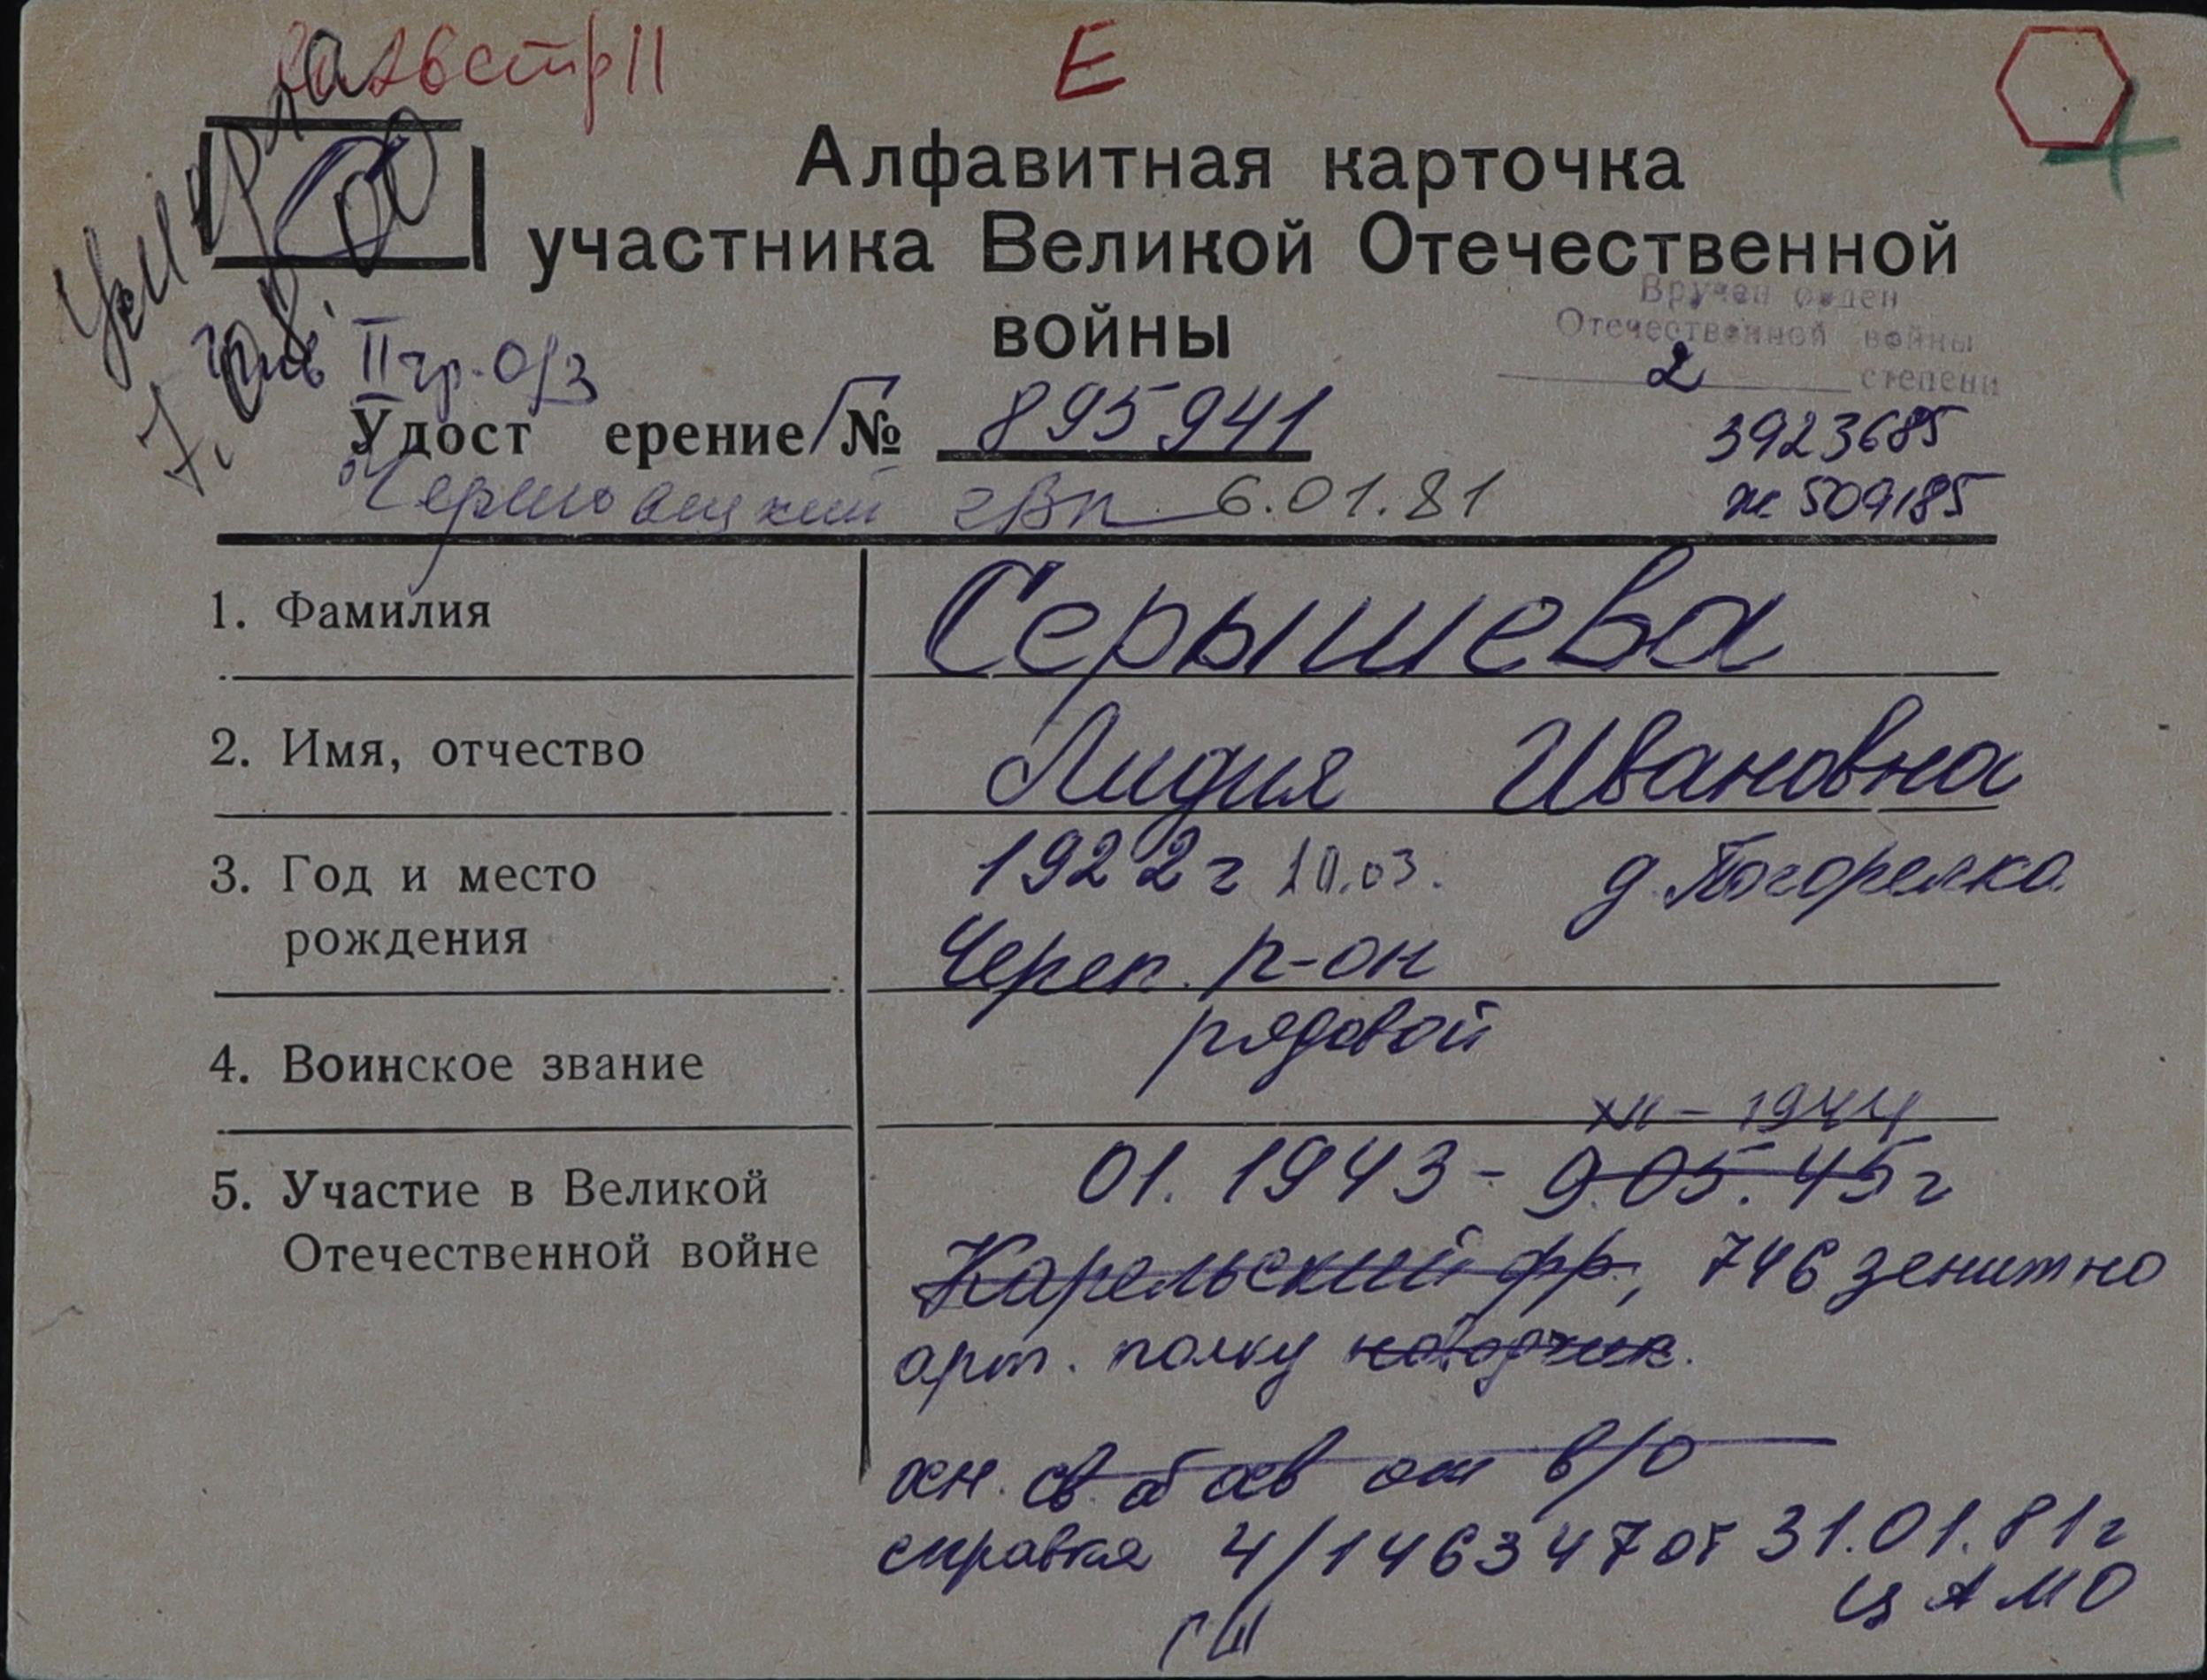 26 стр 11
Е
Умерла
Алфавитная карточка
участника Великой Отечественной
войны
Вручен орден
Отечественной войны
2 степени
инв II гр. О/З
Удост ерение № 895941
3923685
ГВК 6.01.81
509185
1. Фамилия
Серышева
2. Имя, отчество
Лидия Ивановна
3. Год и место
рождения
1922 г 10.03. д. Погорелка
Череп. р-он
4. Воинское звание
рядовой
5. Участие в Великой
Отечественной войне
XII – 1944
01. 1943 - 9.05.45 г
Карельский фр., 746 зенитно
арт. полку наводчик.
осн. св. об от в/о
справка 4/146347 от 31.01.81 г
ЦАМО